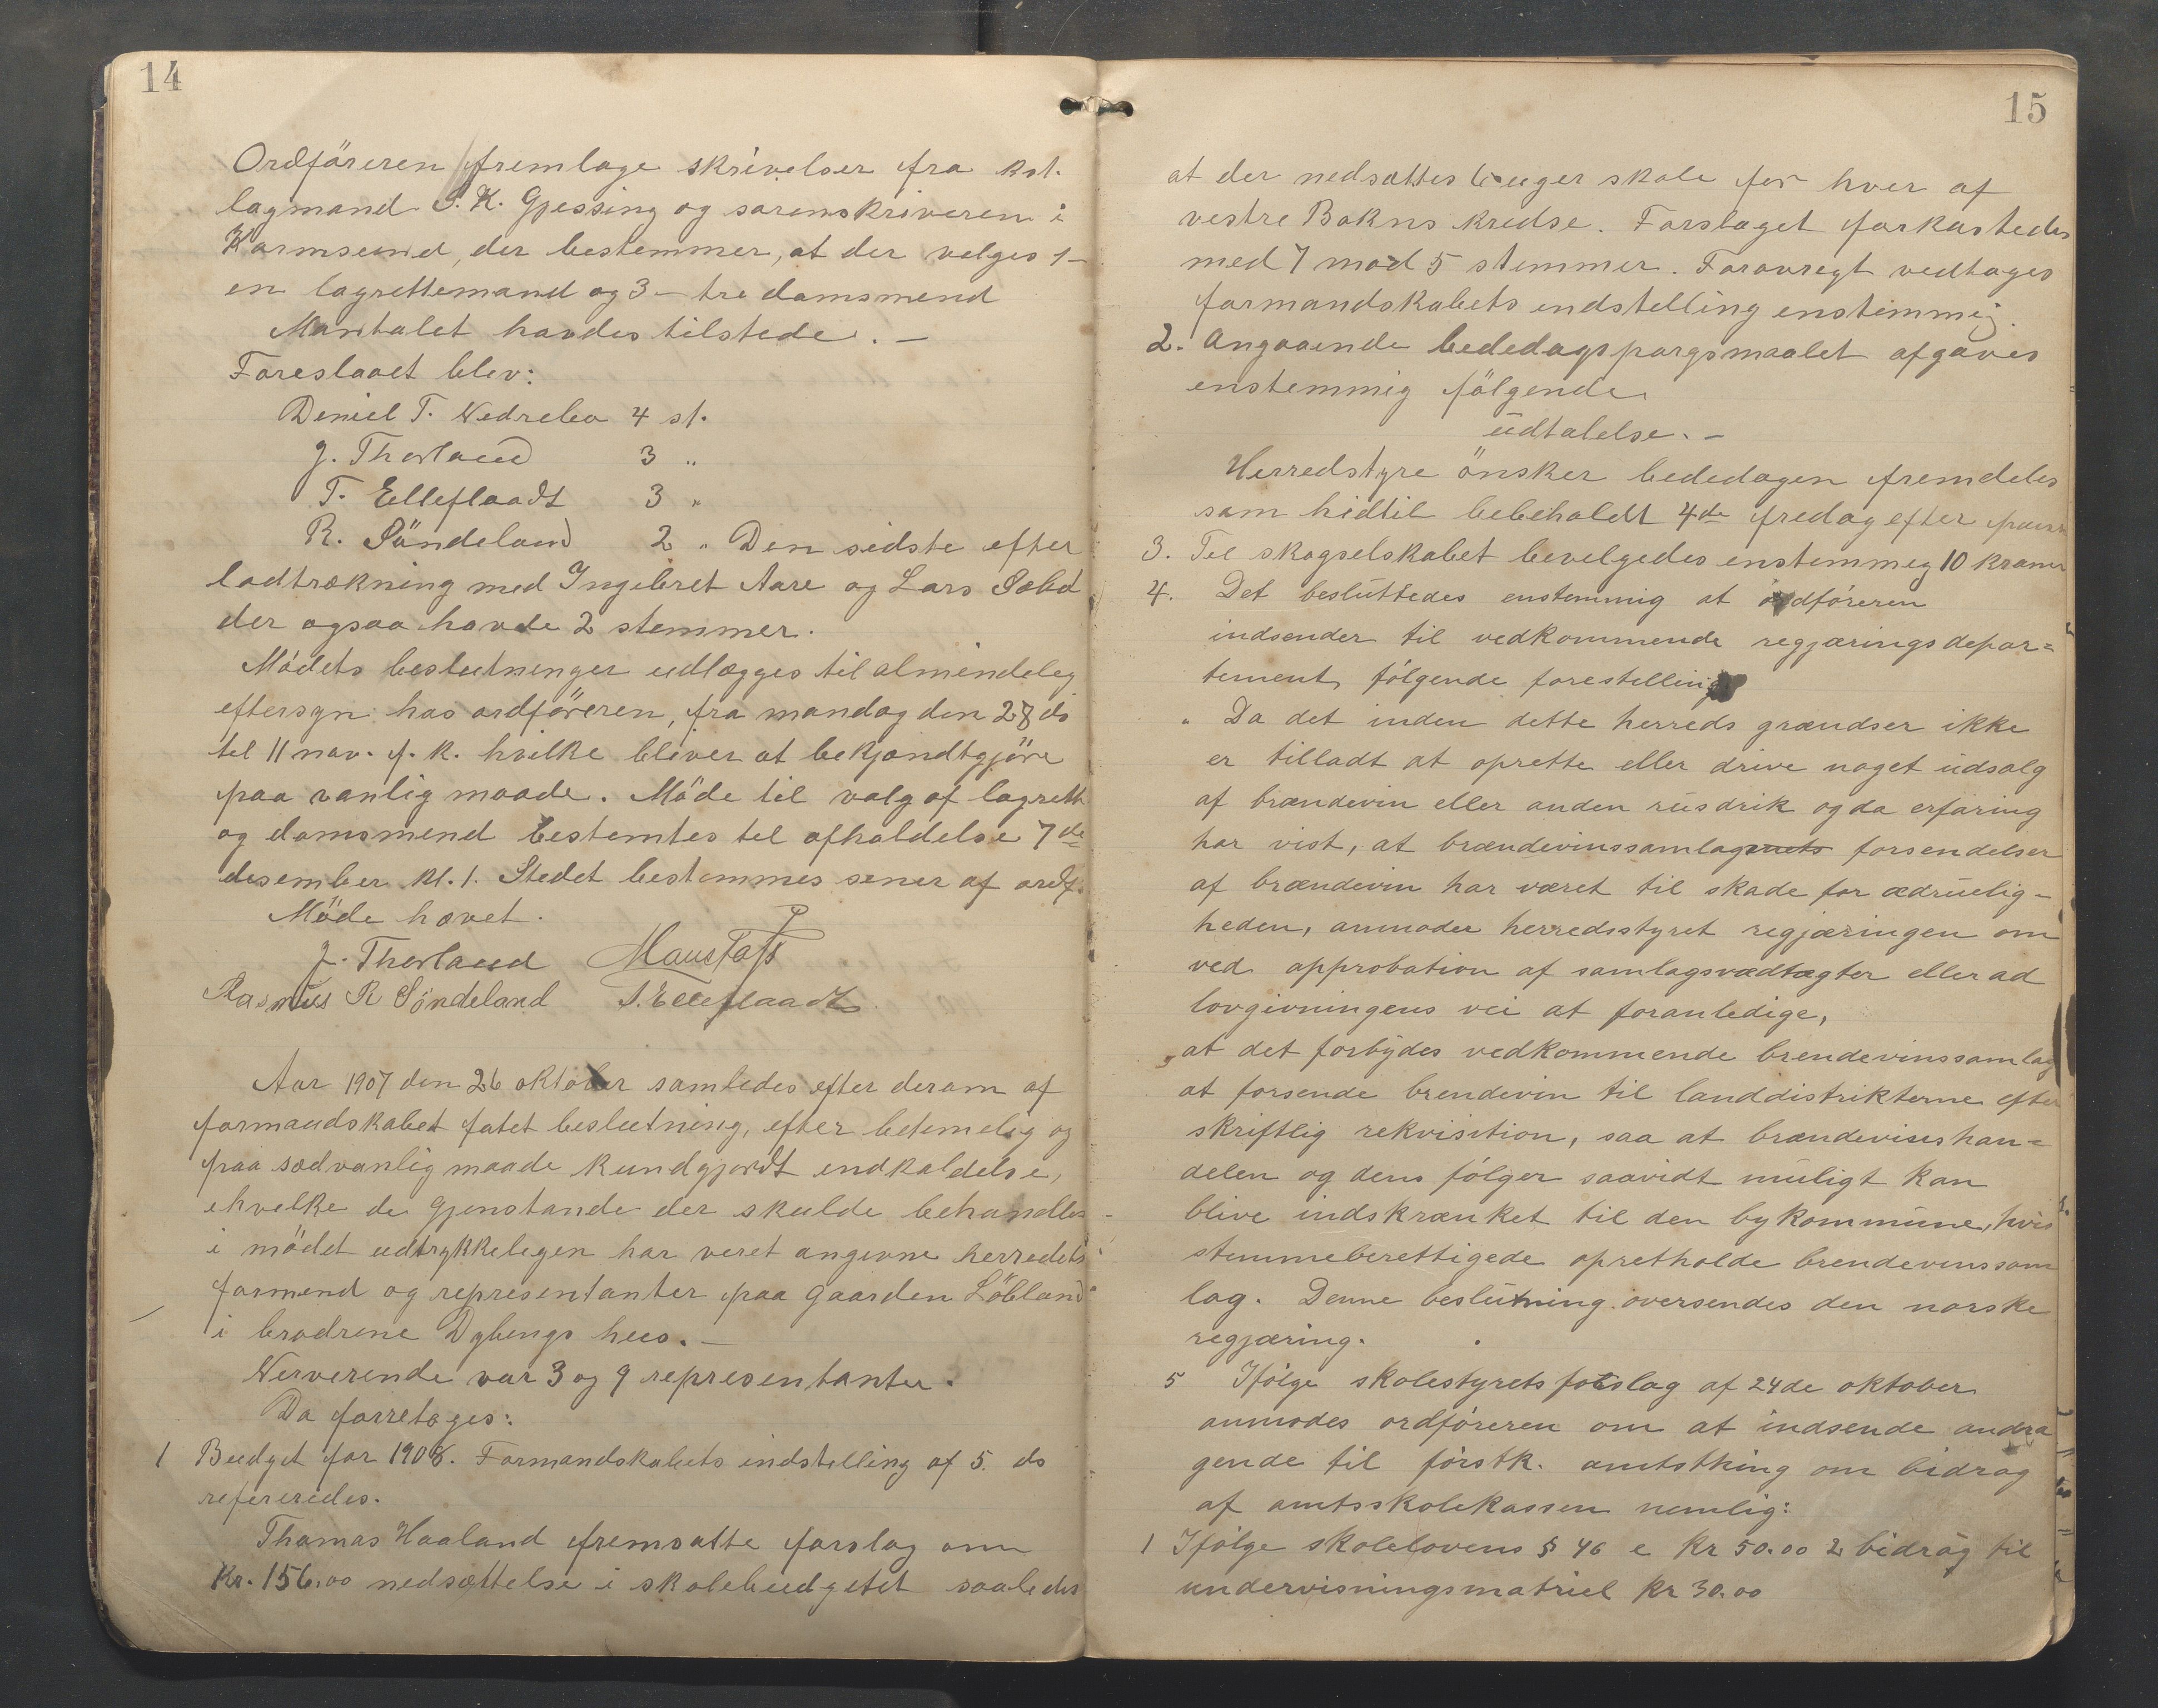 14
Ordföreren fremlage skrivelser fra kst.
lagmand S. K. Gjessing og sorenskriveren i
Karmsund, der bestemmer, at der velges 1-
en lagrettemand og 3 - tre domsmend
Mantalet havdes tilstede. -
Foreslaaet blev:
Deniel T. Nedrebø 4 st.
J. Thorland 3 "
T. Elleflaadt 3 "
R. Söndeland 2 " Den sidste efter
lodtrækning med Ingebret Aare og Lars Sæbø
der ogsaa havde 2 stemmer.
Mødets beslutninger udlægges til almindeleg
eftersyn hos ordföreren, fra mandag den 28 ds
tel 11 nov. f. k. hvilke bliver at bekjendtgjöre
paa vanlig maade. Møde til valg af lagrett
og domsmend bestemtes tel afholdelse 7de
desember kl. 1. Stedet bestemmes sener af ordf.
Møde hævet.
J. Thorland
Rasmus R Söndeland T. Elleflaadt
Aar 1907 den 26 oktober samledes efter derom af
formandskabet fatet beslutning, efter betimelig og
paa sædvanlig maade kundgjordt indkaldelse,
ihvelke de gjenstande der skulde behandles
i mödet udtrykkelegen har veret angivne herredets
formend og representanter paa gaarden Löbland
i brødrene Dybengs hus. -
Nerverende var 3 og 9 representanter.
Da forretoges:
1 Budget for 1908. Formandskabets indstelling af 5. ds
refereredes.
Thomas Haaland fremsatte forslag om
Kr. 156.00 nedsættelse i skolebudgetet saaledes
15
at der nedsættes 6 uger skole for hver af
vestre Bokns kredse. Forslaget forkastedes
med 7 mod 5 stemmer. Foravregt vedtoges
formandskabets indstelling enstemmig.
2. Angaaende bededagsspørgsmaalet afgaves
enstemmig fölgende
udtalelse. -
Herredstyre önsker bededagen fremdeles
som hidtil bebeholdt 4de fredag efter paask
3. Tel skogselskabet bevelgedes enstemmeg 10 kroner
4. Det besluttedes enstemmig at ordföreren
indsender til vedkommende regjæringsdepar=
tement, fölgende forestelling
" Da det inden dette herreds grændser ikke
er tilladt at oprette eller drive noget udsalg
af brændevin eller anden rusdrik og da erfaring
har vist, at brændevinssamlagenets forsendelser
af brændevin har været til skade for ædruelig=
heden, anmoder herredsstyret regjæringen om
ved approbation af samlagsvædtægter eller ad
lovgivningens vei at foranledige,
"at det forbydes vedkommende brendevinssamlag
at forsende brendevin til landdistrikterne efter
skriftlig rekvisition, saa at brændevinshan=
delen og dens følger saavidt muligt kan
blive indskrænket til den bykommune, hvis
stemmeberettigede opretholde brendevenssam
lag. Denne beslutning oversendes den norske
regjæring.
5 Ifölge skolestyrets forslag af 24de oktober
anmodes ordföreren om at indsende andra
gende til förstk. amtsthing om bidrag
af amtsskolekassen nemlig:
1 Ifölge skolelovens § 46 e Kr 50.00 2 bidrag til
undervisningsmatriel Kr 30.00